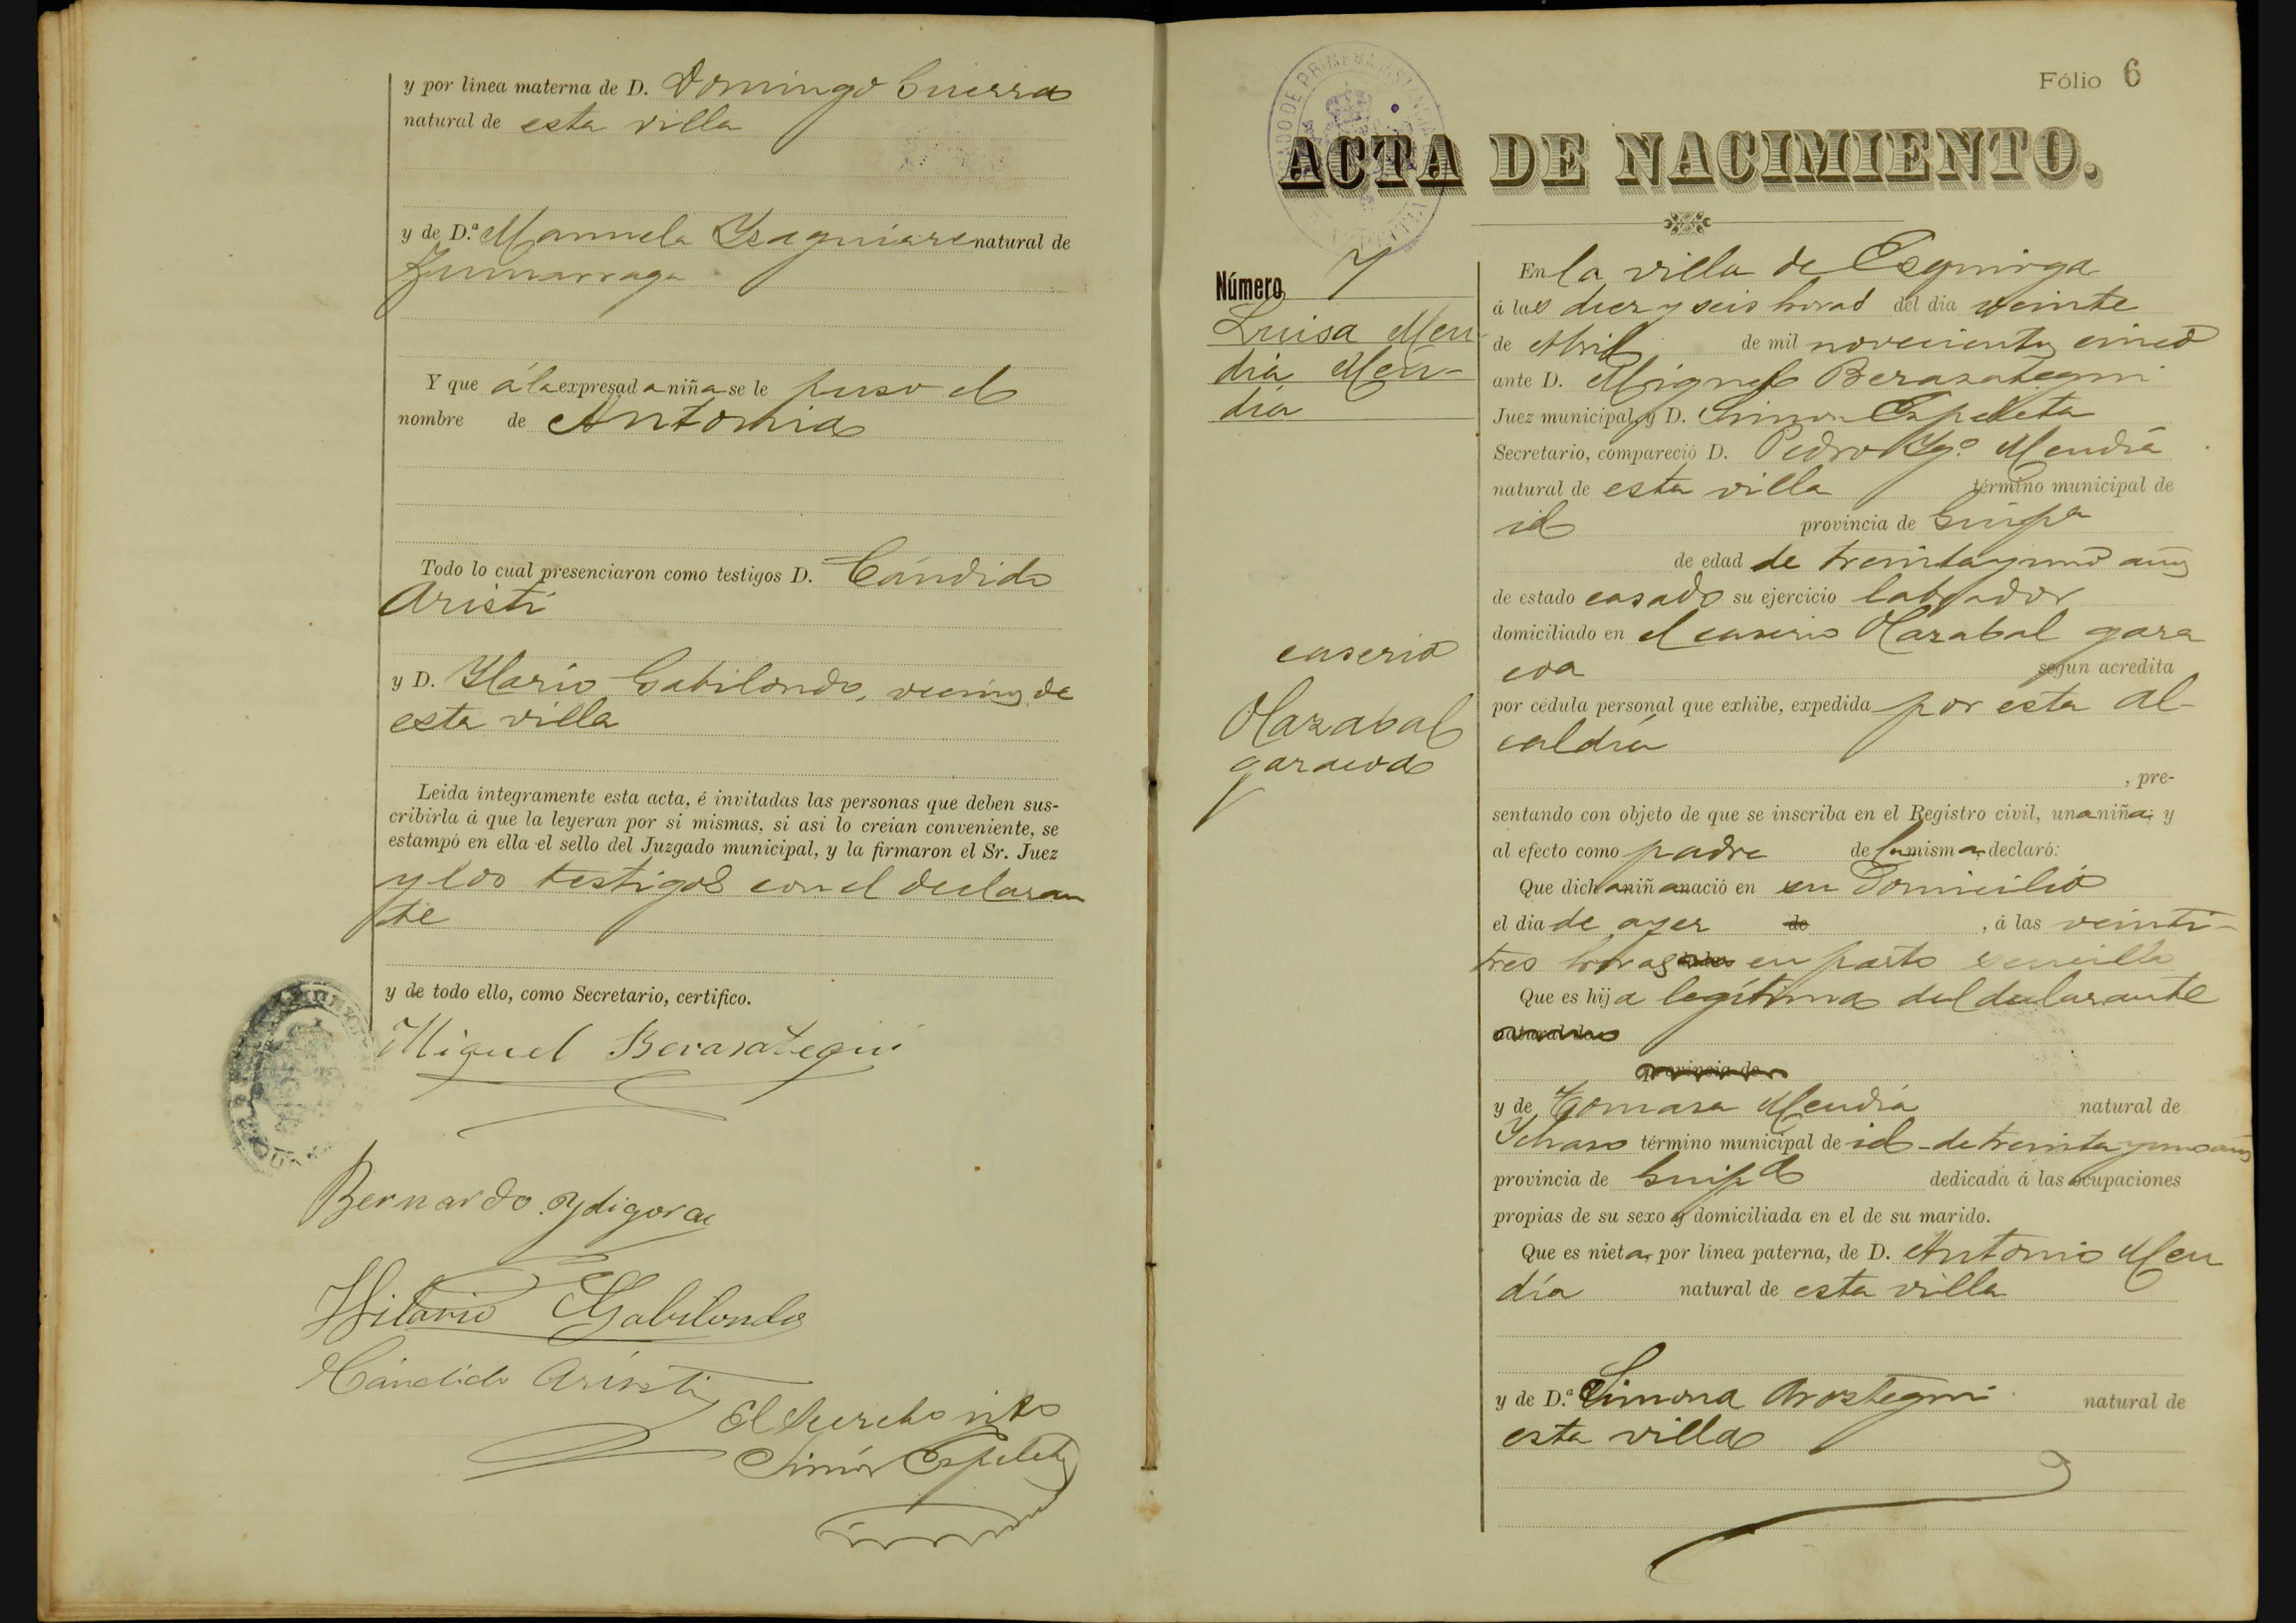 y por linea materna de D. Domingo Guerra
natural de esta villa
y de D.ª Manuela Yzaguirre natural de
Zumarraga
Y que á la expresada niña se le puso el
nombre de Antonia
Todo lo cual presenciaron como testigos D. Cándido
Aristi
y D. Ylario Gabilondo, vecinos de
esta villa
Leida íntegramente esta acta, é invitadas las personas que deben sus-
cribirla á que la leyeran por si mismas, si asi lo creian conveniente, se
estampó en ella el sello del Juzgado municipal, y la firmaron el Sr. Juez
y los testigos con el declaran
te
y de todo ello, como Secretario, certifico.
Miguel Berasategui
Bernardo Ydigoras
Hilario Gabilondo
Cándido Aristi
El Secretario
Simón Espeleta
Fólio 6
ACTA DE NACIMIENTO.
Número 7
Luisa Men-
día Men-
día
caserio
Olazabal
garaicoa
En la villa de Ezquioga
á las diez y seis horas del dia veinte
de Abril de mil novecientos cinco
ante D. Miguel Berasategui
Juez municipal, y D. Simon Espeleta
Secretario, compareció D. Pedro Ygº Mendía
natural de esta villa término municipal de
id provincia de Guipª
de edad de treinta y uno años
de estado casado su ejercicio labrador
domiciliado en el caserio Olazabal gara
coa segun acredita
por cédula personal que exhibe, expedida por esta Al-
caldía
, pre-
sentando con objeto de que se inscriba en el Registro civil, una niña; y
al efecto como padre de la misma, declaró:
Que dicha niña nació en su domicilio
el dia de ayer de , á las veinti-
tres horas en parto sencillo
Que es hija legítima del declarante
provincia de
y de Tomasa Mendía natural de
Ychaso término municipal de id de treinta y uno años
provincia de Guipª dedicada á las ocupaciones
propias de su sexo y domiciliada en el de su marido.
Que es nieta, por linea paterna, de D. Antonio Men
día natural de esta villa
y de D.ª Simona Aroztegui natural de
esta villa